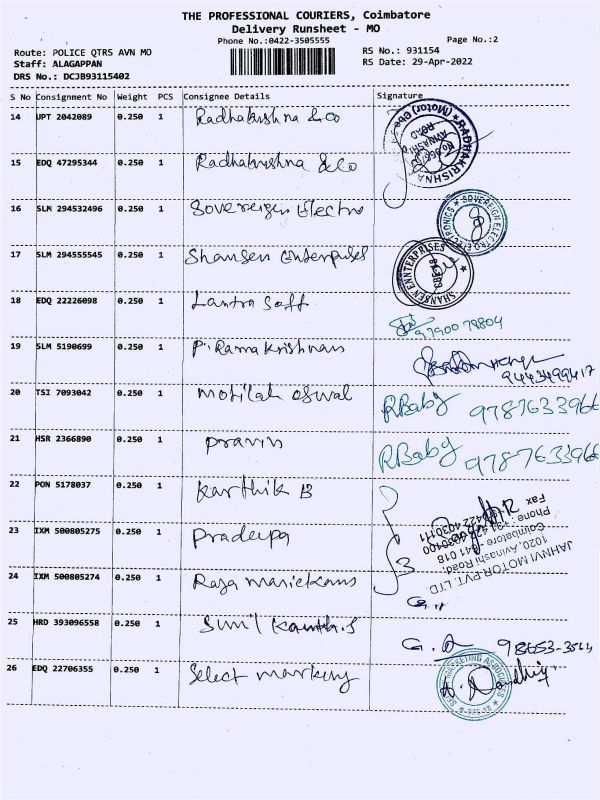 THE PROFESSIONAL COURIERS, Coimbatore
Delivery Runsheet - MO
Phone No.:0422-3505555 Page No.:2
Route: POLICE QTRS AVN MO RS No.: 931154
Staff: ALAGAPPAN RS Date: 29-Apr-2022
DRS No.: DCJB93115402
S No Consignment No Weight PCS Consignee Details Signature
14 UPT 2042089 0.250 1 Radhakrishna & Co
RADHAKRISHNA (Motor) Cbe
AVINASHI ROAD
15 EDQ 47295344 0.250 1 Radhakrishna & Co
16 SLM 294532496 0.250 1 Sovereign Electro
SOVEREIGN ELECTRONICS
17 SLM 294555545 0.250 1 Shansen Enterprises
SHANSEN ENNTERPRISES
CBE-18
18 EDQ 22226098 0.250 1 Lantra Soft
97900 79804
19 SLM 5190699 0.250 1 P. Rama Krishnan
9443499417
20 TSI 7093042 0.250 1 Motilal Oswal RBaby 9787633966
21 HSR 2366890 0.250 1 Pravin RBaby 9787633966
22 PON 5178037 0.250 1 Karthik B
23 IXM 500805275 0.250 1 Pradeepa
3
JAHNVI MOTOR PVT. LTD
1020, Avinashi Road,
Coimbatore - 641 018
Phone
Fax
24 IXM 500805274 0.250 1 Raja Manickam
25 HRD 393096558 0.250 1 Sunil Kanth.S
98653-3564
26 EDQ 22706355 0.250 1 Select marketing
MARKETING ASSOCIATES